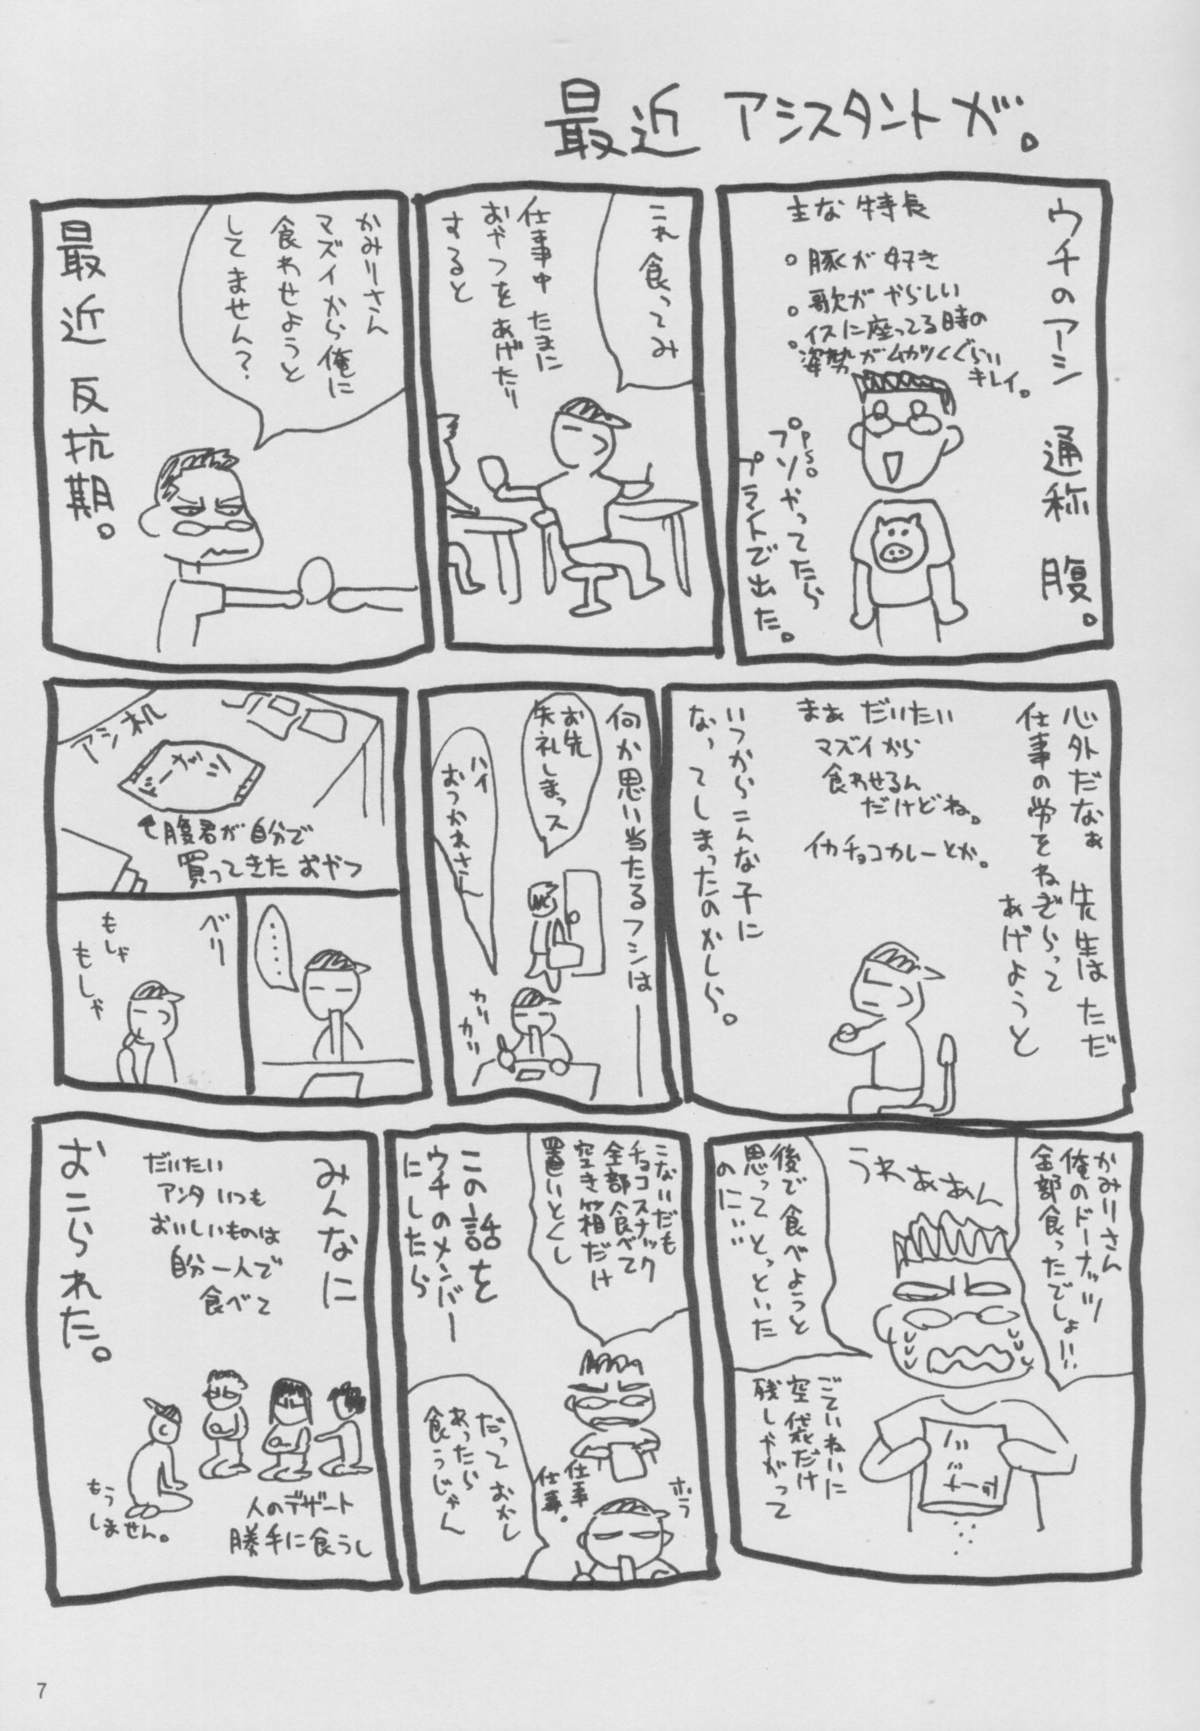 最近 アシスタントが。
ウチのアシ 通称 腹。
主な特長
。豚が好き
。歌がやらしい
。イスに座ってる時の
姿勢がムカツくぐらい
キレイ。
PSO
プソやってたら
プラントで出た。
これ食ってみ
仕事中 たまに
おやつをあげたり
すると
かみりーさん
マズイから俺に
食わせようと
してません?
最近 反抗期。
心外だなぁ 先生はただ
仕事の労をねぎらって
あげようと
まぁ だいたい
マズイから
食わせるん
だけどね。
イカチョコカレーとか。
いつからこんな子に
なってしまったのかしら。
何か思い当たるフシは――
お先
失礼しまっス
ハイ
おつかれさん
カリ
カリ
アシ机
↑腹君が自分で
買ってきた おやつ
・・・・
ベリ
もしゃ
もしゃ
かみりーさん
俺のドーナッツ
全部食ったでしょ!!
うわぁぁん
後で食べようと
思ってとっといた
のに!!
ごていねいに
空袋だけ
残しやがって
こないだも
チョコスナック
全部食べて
空き箱だけ
置いとくし
ホラ
仕事
仕事。
だって おかし
あったら
食うじゃん
この話を
ウチのメンバー
にしたら
みんなに
だいたい
アンタ いつも
おいしいものは
自分一人で
食べて
人のデザート
勝手に食うし
もう
しません。
おこられた。
7